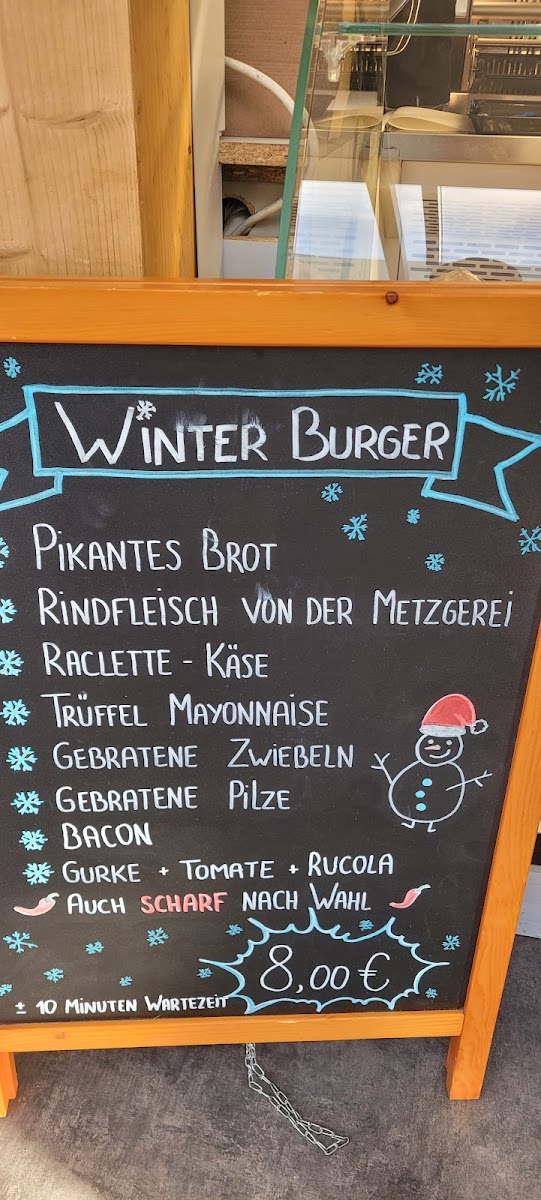 WINTER BURGER
PIKANTES BROT
RINDFLEISCH VON DER METZGEREI
RACLETTE - KÄSE
TRÜFFEL MAYONNAISE
GEBRATENE ZWIEBELN
GEBRATENE PILZE
BACON
GURKE + TOMATE + RUCOLA
AUCH SCHARF NACH WAHL
8,00 €
± 10 MINUTEN WARTEZEIT